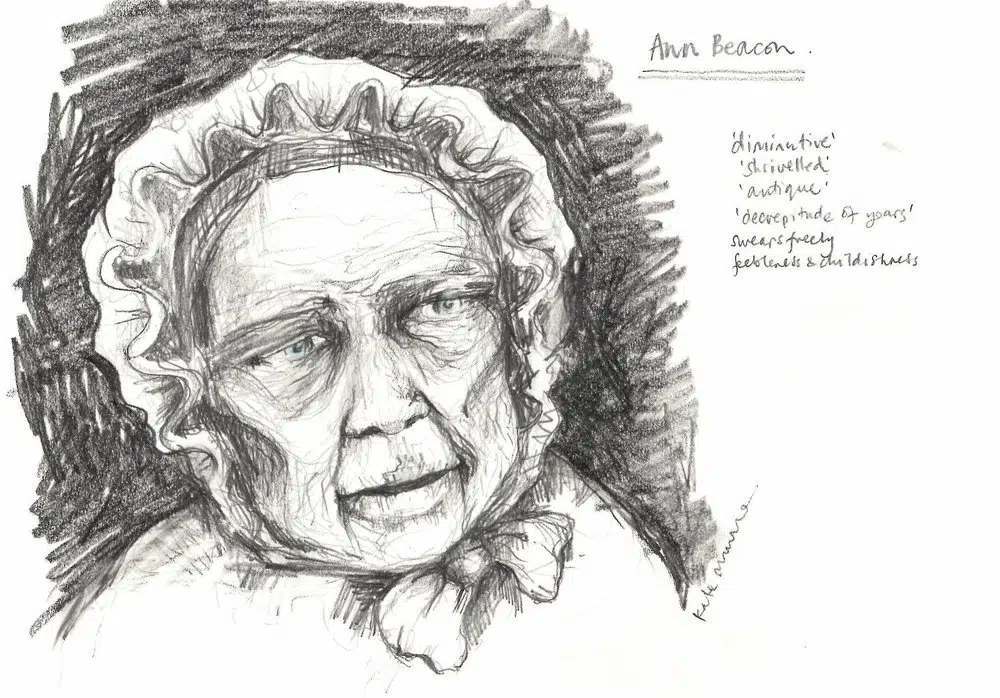 Ann Beacon.
'diminutive'
'shrivelled'
'antique'
'decrepitude of years'
swears freely
feebleness & childishness
Kate